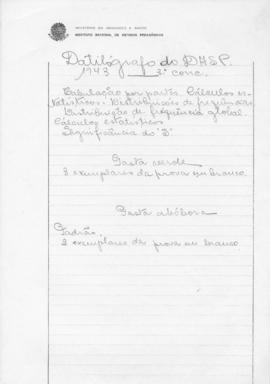 MINISTÉRIO DA EDUCAÇÃO E SAÚDE
INSTITUTO NACIONAL DE ESTUDOS PEDAGÓGICOS
Datilógrafo do DASP.
1943 3º conc.
Tabulação por partes. Cálculos es-
tatísticos. Distribuições de frequências.
Distribuição de frequência global.
Cálculos estatísticos
Significância do "D"
Pasta verde
2 exemplares da prova em branco
Pasta abóbora
Padrão.
2 exemplares da prova em branco